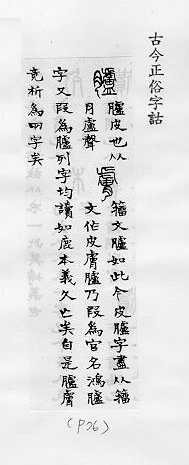 古今正俗字詁
臚 臚皮也从
月盧聲
膚 籀文臚如此今皮臚字盡从籀
文作皮膚臚乃叚為官名鴻臚
字又叚為臚列字均讀如鹿本義久亡矣自是臚膚
竟析為四字矣
(P26)